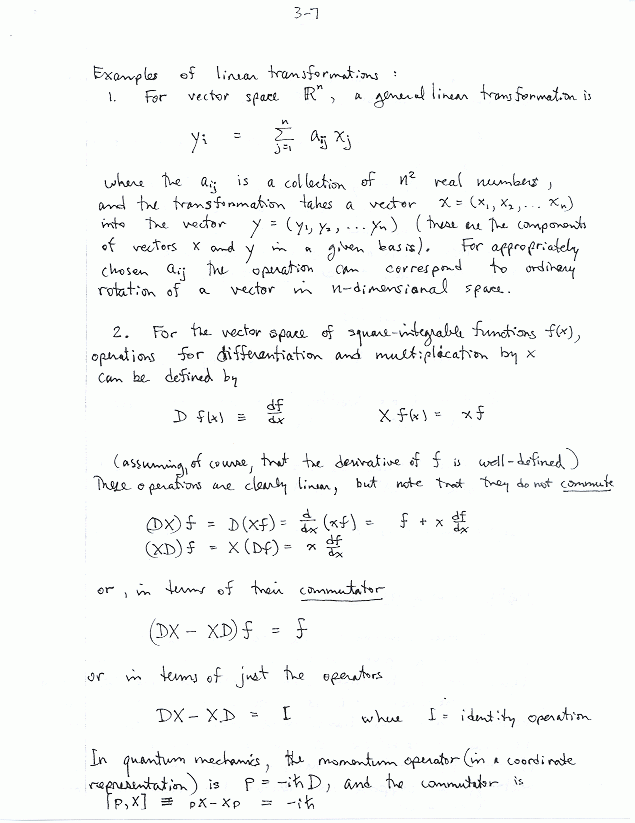 3-7
Examples of linear transformations :
1. For vector space ℝⁿ , a general linear transformation is
yᵢ = Σⱼ₌₁ⁿ aᵢⱼ xⱼ
where the aᵢⱼ is a collection of n² real numbers ,
and the transformation takes a vector x = (x₁, x₂, ... xₙ)
into the vector y = (y₁, y₂, ... yₙ) (these are the components
of vectors x and y in a given basis). For appropriately
chosen aᵢⱼ the operation can correspond to ordinary
rotation of a vector in n-dimensional space.
2. For the vector space of square-integrable functions f(x),
operations for differentiation and multiplication by x
can be defined by
D f(x) ≡ df/dx X f(x) = xf
(assuming, of course, that the derivative of f is well-defined)
These operations are clearly linear, but note that they do not commute
(DX)f = D(Xf) = d/dx (xf) = f + x df/dx
(XD)f = X(Df) = x df/dx
or , in terms of their commutator
(DX - XD)f = f
or in terms of just the operators
DX - XD = I where I = identity operation
In quantum mechanics, the momentum operator (in a coordinate
representation) is P = -iħD, and the commutator is
[P,X] ≡ PX-XP = -iħ